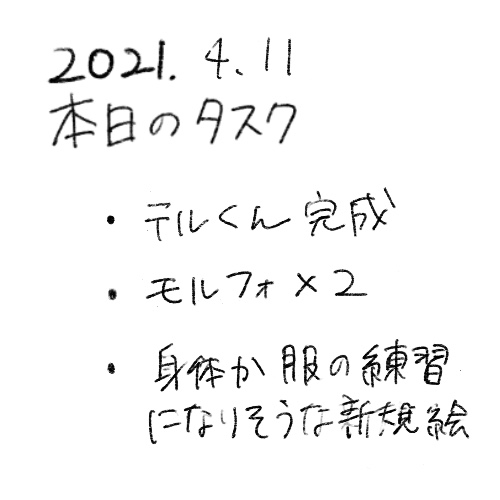 2021. 4. 11
本日のタスク
・テルくん 完成
・モルフォ×2
・身体か服の練習
になりそうな新規絵